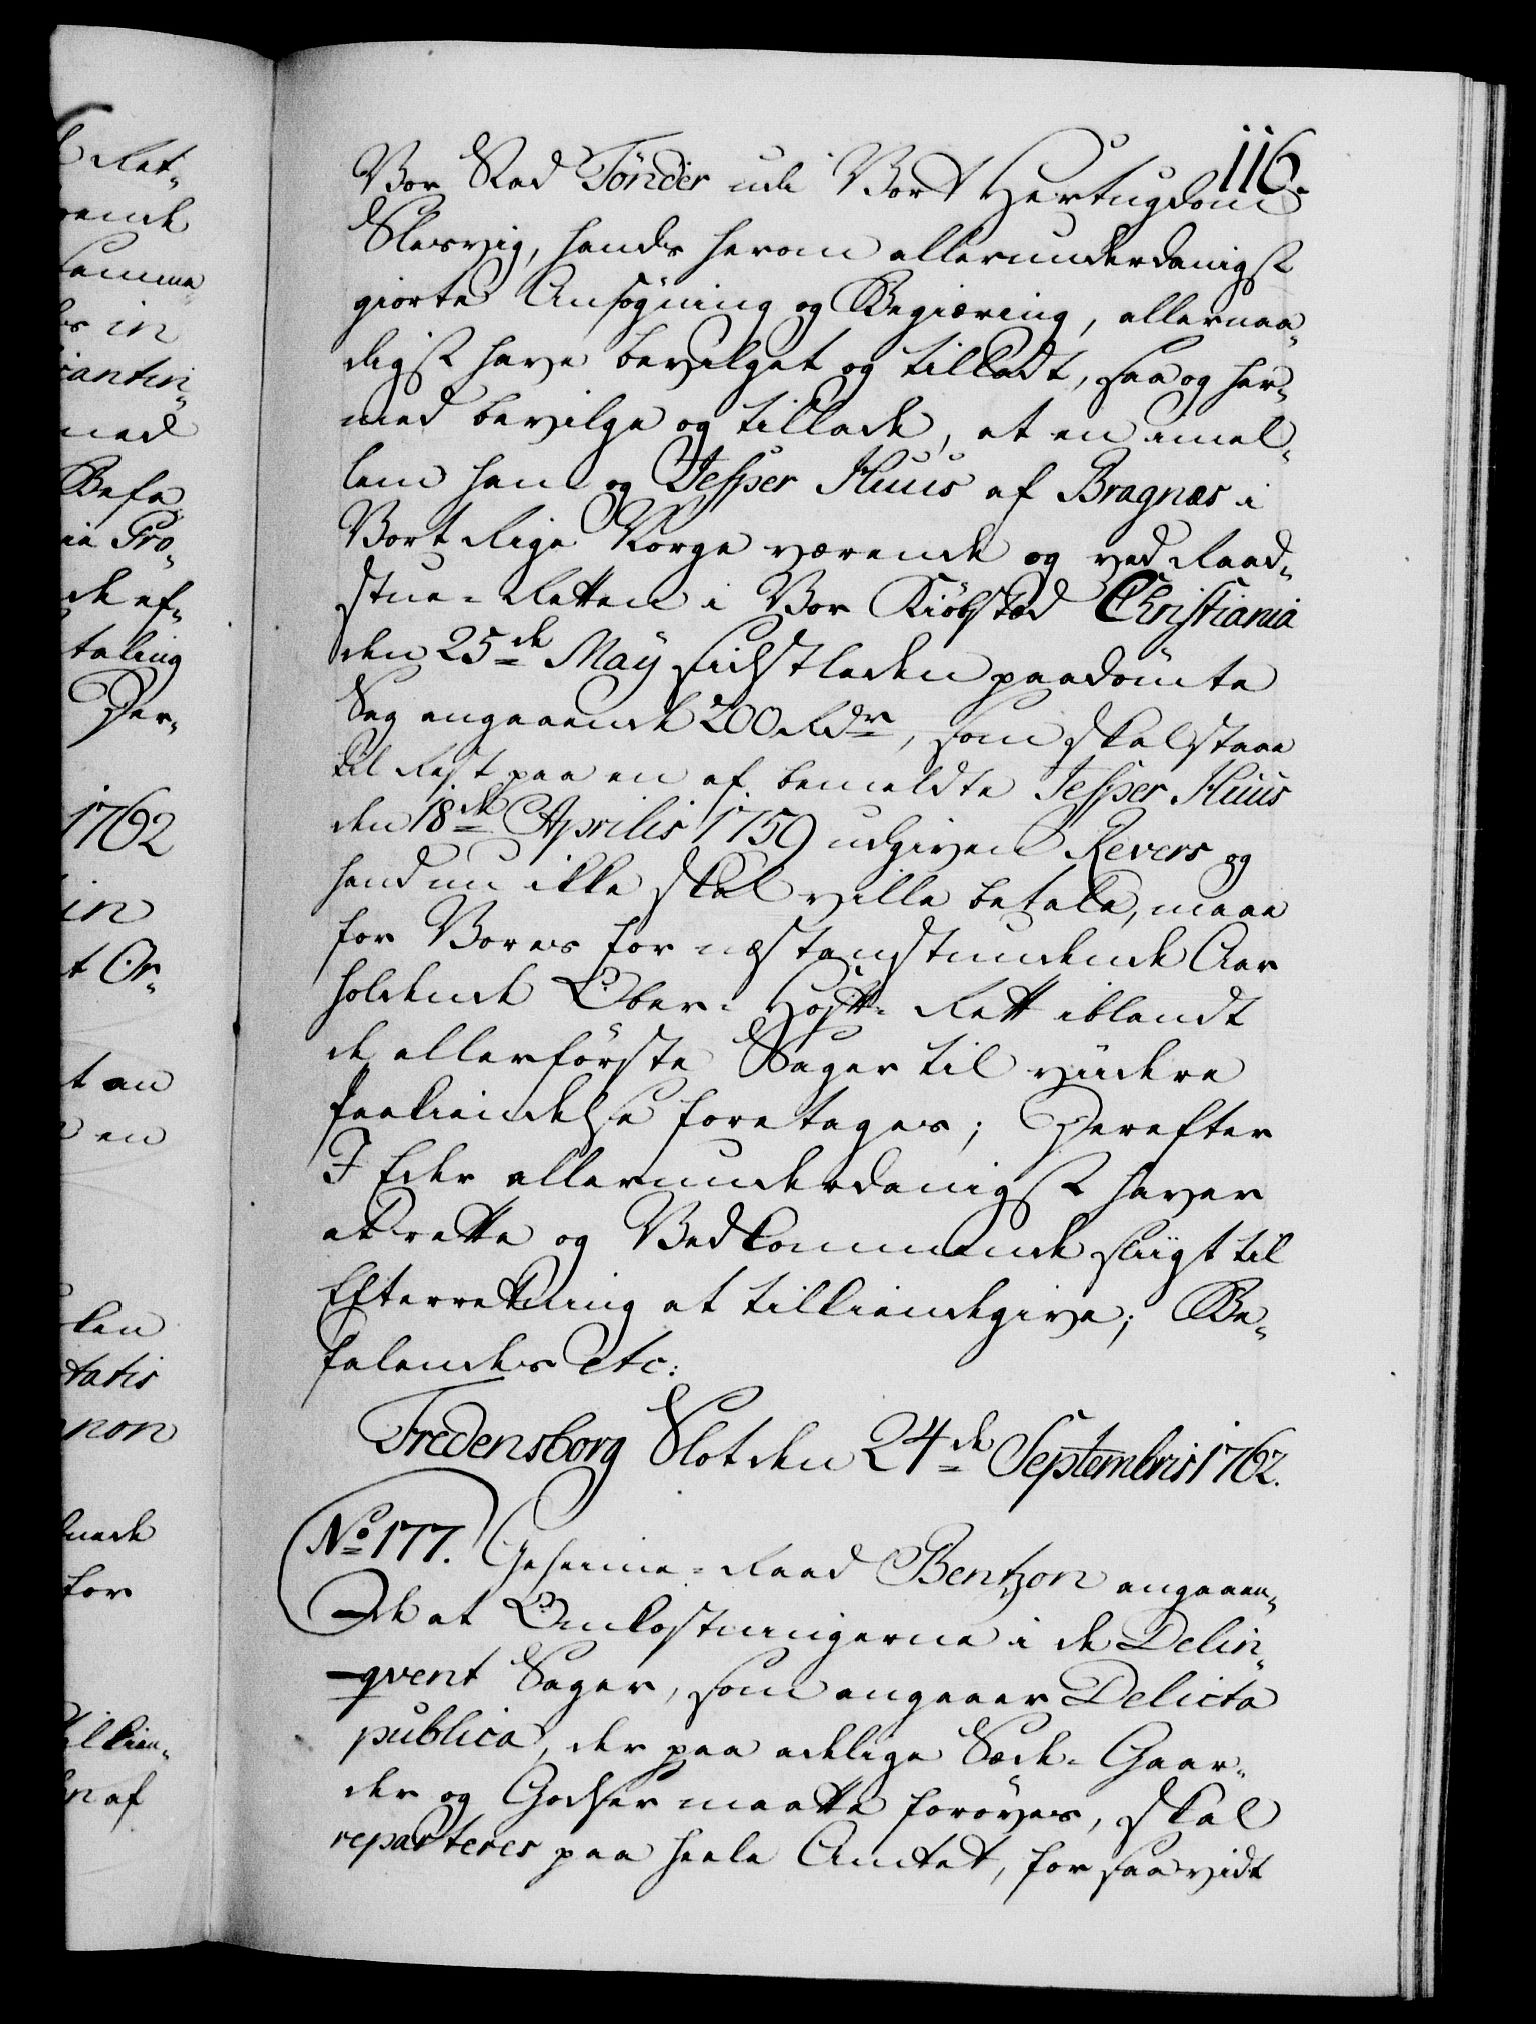 116.
Vor Stad Tönder udi Vort Hertugdom
Slesvig, hands herom allerunderdanigst
giorte Ansøgning og Begiæring, allernaa-
digst have bevilget og tilladt, saa og her-
med bevilge og tillade, at en imel-
lem ham og Jesper Huus af Bragnæs i
Vort Rige Norge værende og ved Raad-
stue-Retten i Vor Kiöbstæd Christiania
den 25de May sidstleden paadömte
Sag angaaende 200 Rdr, som skal staae
til Rest paa en af bemeldte Jesper Huus
den 18de Aprilis 1759 udgiven Revers og
hand nu ikke skal ville betale, maae
for Vores for næstanstundende Aar
holdende Ober-Hof-Rett iblandt
de allerförste Sager til viidere
Paakiendelse foretages; Derefter
I Eder allerunderdanigst haver
at rette og Vedkommende sligt til
Efterretning at tilkiendegive; Be-
falendes etc:
Fredensborg Slot den 24de Septembris 1762.
No 177. Geheime-Raad Bentzon angaaen-
de at Omkostningerne i de Delin-
qvent Sager, som angaaer Delicta
publica, der paa adelige Sæde-Gaar-
der og Godser maatte foröves, skal
reparteres paa heele Amtet, for saavidt